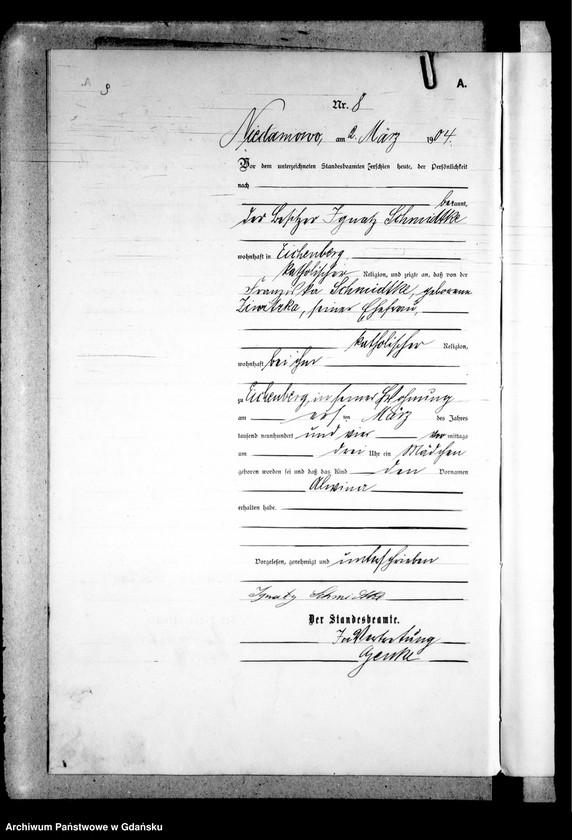 A.
Nr. 8
Niedamowo, am 2. März 1904.
Vor dem unterzeichneten Standesbeamten erschien heute, der Persönlichkeit
nach
bekannt,
der Besitzer Ignatz Schmidtke
wohnhaft in Eichenberg
katholischer Religion, und zeigte an, daß von der
Franziska Schmidtke, geborene
seiner Ehefrau,
katholischer Religion,
wohnhaft bei ihm
zu Eichenberg, in seiner Wohnung
am ersten März des Jahres
tausend neunhundert und vier vormittags
um drei Uhr ein Mädchen
geboren worden sei und daß das Kind den Vornamen
Alwina
erhalten habe.
Vorgelesen, genehmigt und unterschrieben
Ignatz Schmidtke
Der Standesbeamte.
In Vertretung
Archiwum Państwowe w Gdańsku